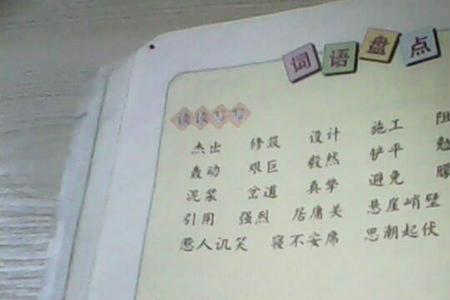 词语盘点
读读写写
杰出 修筑 设计 施工 阻
轰动 艰巨 毅然 铲平 勉
泥浆 岔道 真挚 避免
引用 强烈 居庸关 悬崖峭壁
惹人讥笑 寝不安席 思潮起伏